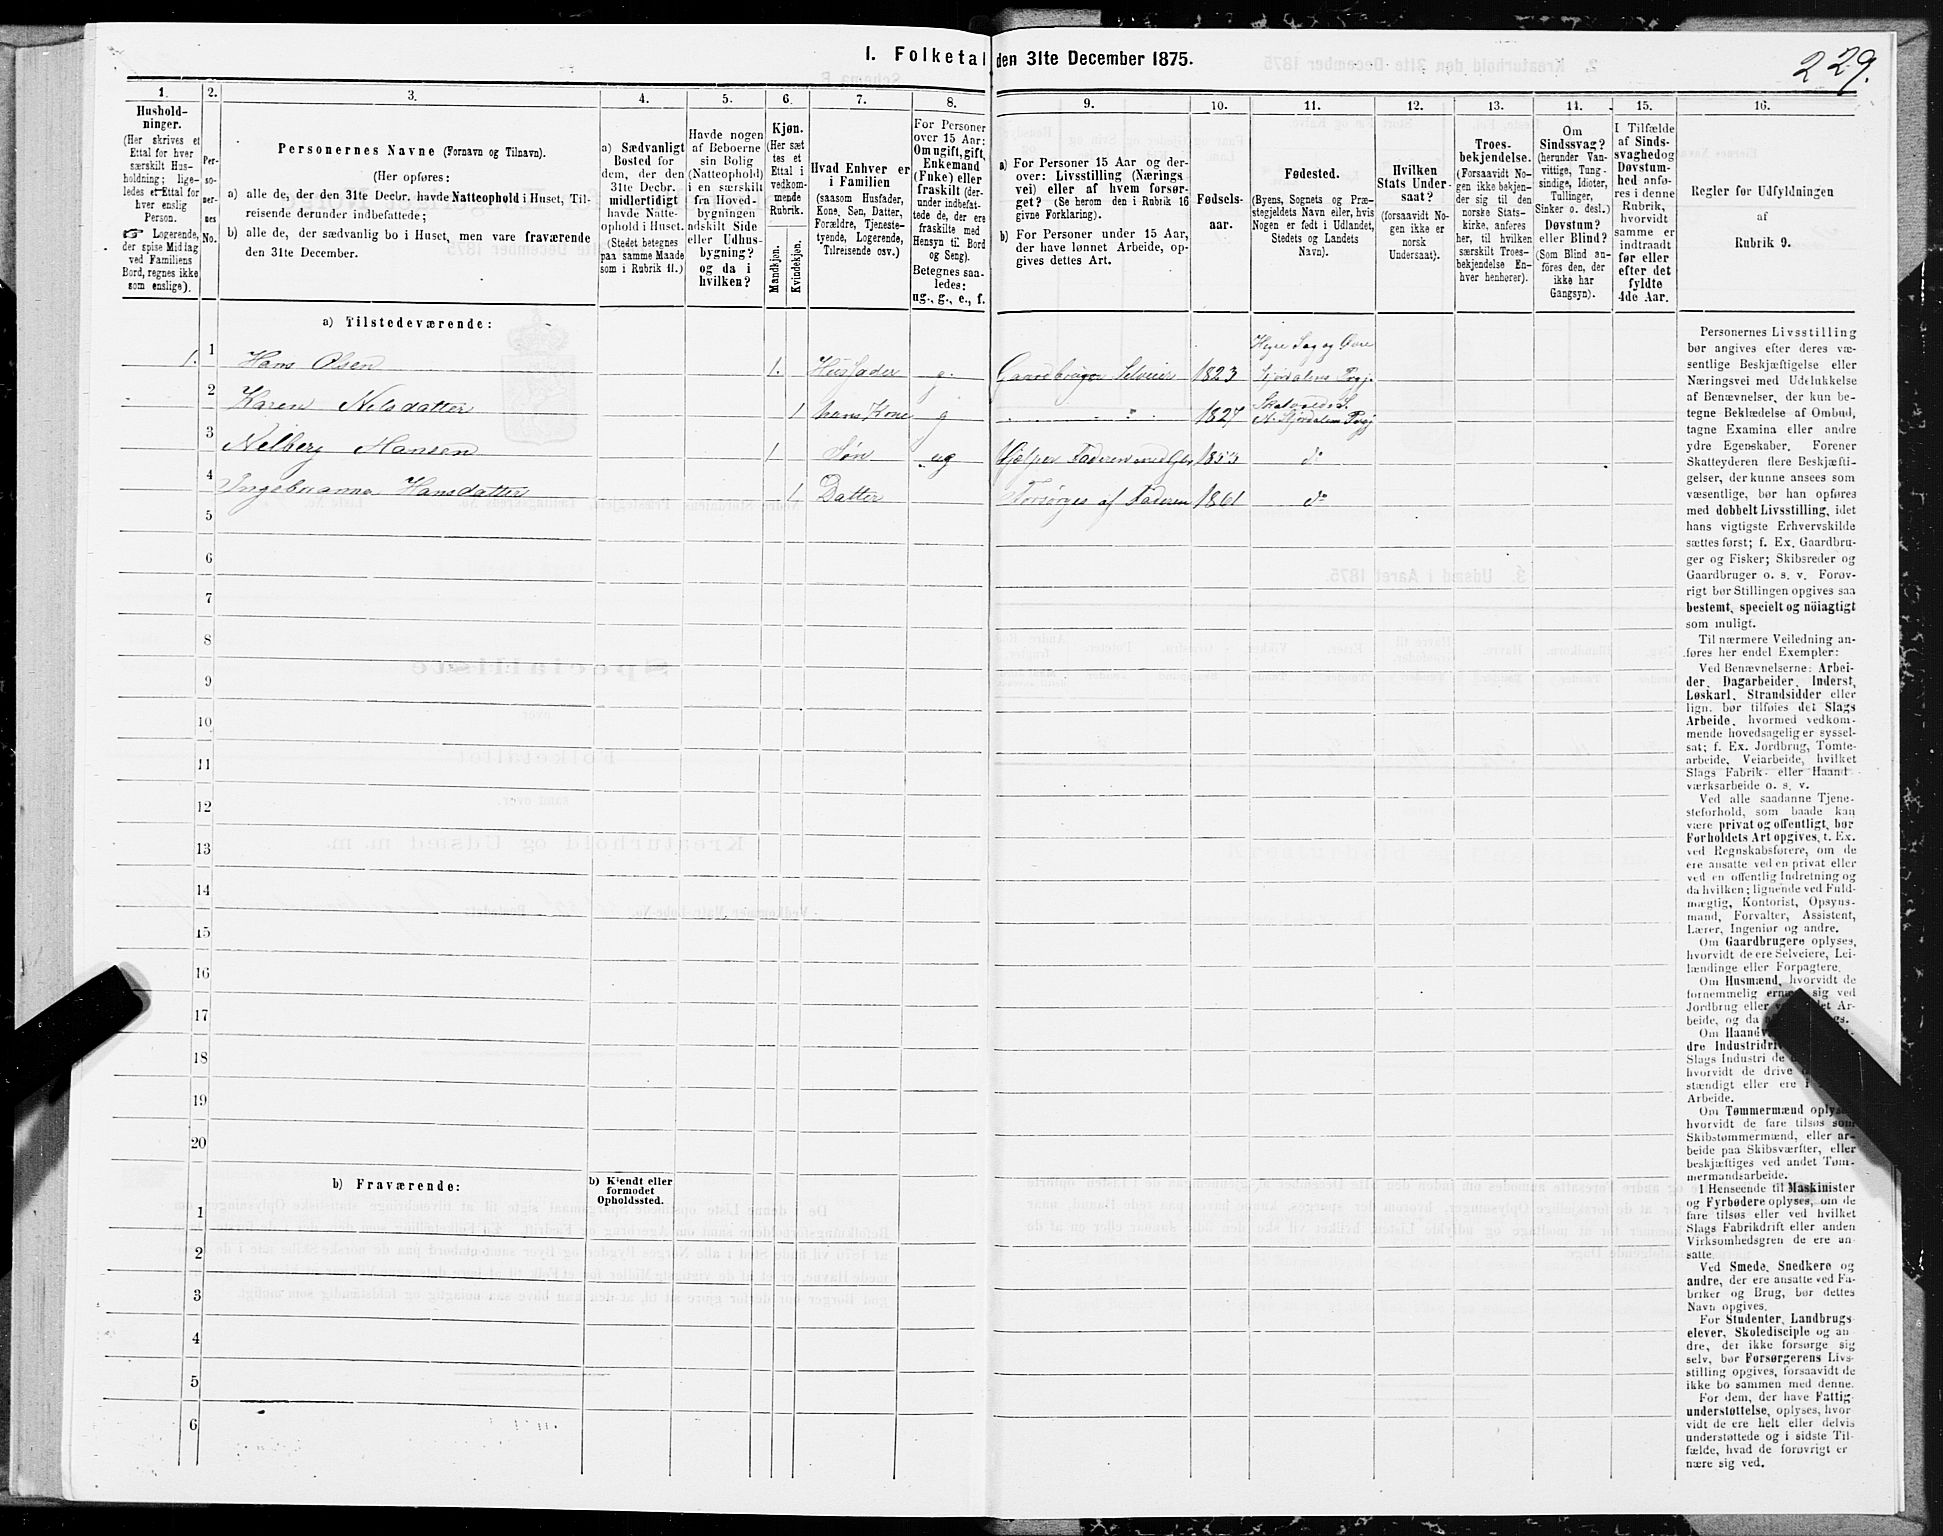 I. Folketal den 31te December 1875.
229.
1.
Hushold-
ninger.
(Her skrives et
Ettal for hver
særskilt Hus-
holdning; lige-
ledes et Ettal for
hver enslig
Person.
☞ Logerende,
der spise Middag
ved Familiens
Bord, regnes ikke
som enslige).
2.
Per-
so-
ner-
nes
No.
3.
Personernes Navne (Fornavn og Tilnavn).
(Her opføres:
a) alle de, der den 31te Decbr. havde Natteophold i Huset, Til-
reisende derunder indbefattede;
b) alle de, der sædvanlig bo i Huset, men vare fraværende
den 31te December.
4.
a) Sædvanligt
Bosted for
dem, der den
31te Decbr.
midlertidigt
havde Natte-
ophold i Huset.
(Stedet betegnes
paa samme Maade
som i Rubrik 11.)
5.
Havde nogen
af Beboerne
sin Bolig
(Natteophold)
i en særskilt
fra Hoved-
bygningen
adskilt Side
eller Udhus-
bygning?
og da i
hvilken?
6.
Kjøn.
(Her sæt
tes et
Ettal i
vedkom-
mende
Rubrik.
Mandkjøn.
Kvindekjøn.
7.
Hvad Enhver er
i Familien
(saasom Husfader,
Kone, Søn, Datter,
Forældre, Tjeneste-
tyende, Logerende,
Tilreisende osv.)
8.
For Personer
over 15 Aar:
Om ugift, gift,
Enkemand
(Enke) eller
fraskilt (der-
under indbefat-
tede de, der ere
fraskilte med
Hensyn til Bord
og Seng).
Betegnes saa-
ledes:
ug., g., e., f.
9.
a) For Personer 15 Aar og der-
over: Livsstilling (Nærings
vei) eller af hvem forsør-
get? (Se herom den i Rubrik 16
givne Forklaring).
b) For Personer under 15 Aar,
der have lønnet Arbeide, op-
gives dettes Art.
10.
Fødsels-
aar.
11.
Fødested.
(Byens, Sognets og Præ-
stegjeldets Navn eller, hvis
Nogen er født i Udlandet,
Stedets og Landets
Navn).
12.
Hvilken
Stats Under-
saat?
(forsaavidt No-
gen ikke er
norsk
Undersaat).
13.
Troes-
bekjendelse.
(Forsaavidt No-
gen ikke bekjen-
der sig til den
norske Stats-
kirke, anføres
her, til hvilken
særskilt Troes-
bekjendelse En-
hver henhører).
14.
Om
Sindssvag?
(herunder Van-
vittige, Tung-
sindige, Idioter,
Tullinger,
Sinker o. desl.)
Døvstum?
eller Blind?
(Som Blind an-
føres den, der
ikke har
Gangsyn).
15.
I Tilfælde
af Sinds-
svaghed og
Døvstum-
hed anfø-
res i denne
Rubrik,
hvorvidt
samme er
indtraadt
før eller
efter det
fyldte
4de Aar.
16.
Regler før Udfyldningen
af
Rubrik 9.
a) Tilstedeværende:
1. 1 Hans Olsen 1. Husfader g. Gaardbruger Selveier 1823 Hegre Sog og Øvre Stjørdalens Prgj.
2 Karen Nilsdatter 1 hans Kone g " 1827 Skatvold S. N. Stjørdalens Prgj
3 Nelberg Hansen 1 Søn ug Hjelper Faderen med 1853 do
4 Ingeboranna Hansdatter 1 Datter Forsørges af Faderen 1861 do
5
6
7
8
9
10
11
12
13
14
15
16
17
18
19
20
b) Fraværende:
b) Kjendt eller
formodet
Opholdssted.
1
2
3
4
5
6
Personernes Livsstilling
bør angives efter deres væ-
sentlige Beskjæftigelse eller
Næringsvei med Udelukkelse
af Benævnelser, der kun be-
tegne Beklædelse af Ombud,
tagne Examina eller andre
ydre Egenskaber. Forener
Skatteyderen flere Beskjæfti-
gelser, der kunne ansees som
væsentlige, bør han opføres
med dobbelt Livsstilling, idet
hans vigtigste Erhvervskilde
sættes først; f. Ex. Gaardbru-
ger og Fisker; Skibsreder og
Gaardbruger o. s. v. Forøv-
rigt bør Stillingen opgives saa
bestemt, specielt og nöiagtigt
som muligt.
Til nærmere Veiledning an-
føres her endel Exempler:
Ved Benævnelserne: Arbei-
der, Dagarbeider, Inderst,
Løskarl, Strandsidder eller
lign. bør tilføies det Slags
Arbeide, hvormed vedkom-
mende hovedsagelig er syssel-
sat; f. Ex. Jordbrug, Tomte-
arbeide, Veiarbeide, hvilket
Slags Fabrik- eller Haand
værksarbeide o. s. v.
Ved alle saadanne Tjene-
steforhold, som baade kan
være privat og offentligt, bør
Forholdets Art opgives, t. Ex.
ved Regnskabsførere, om de
ere ansatte ved en privat eller
ved en offentlig Indretning og
da hvilken; lignende ved Fuld-
mægtig, Kontorist, Opsyns-
mand, Forvalter, Assistent,
Lærer, Ingeniør og andre.
Om Gaardbrugere oplyses,
hvorvidt de ere Selveiere, Lei-
lændinge eller Forpagtere.
Om Husmænd, hvorvidt de
fornemmelig ernære sig ved
Jordbrug eller
beide, og da
Om
dre Industridri
Slags Industri de
hvorvidt de drive
stændigt eller ere i
Arbeide.
Om Tømmermænd oplyses
hvorvidt de fare tilsøs som
Skibstømmermænd, eller ar-
beide paa Skibsværfter, eller
beskjæftiges ved andet Tøm-
mermandsarbeide.
I Henseende til Maskinister
og Fyrbødere oplyses, om de
fare tilsøs eller ved hvilket
Slags Fabrikdrift eller anden
Virksomhedsgren de ere an-
satte.
Ved Smede, Snedkere og
andre, der ere ansatte ved Fa-
briker og Brug, bør dettes
Navn opgives.
For Studenter, Landbrugs-
elever, Skoledisciple og an
dre, der ikke forsørge sig
selv, bør Forsørgerens Livs-
stilling opgives, forsaavidt de
ikke bo sammen med denne.
For dem, der have Fattig-
understøttelse, oplyses, hvor
vidt de ere helt eller delvis
understøttede og i sidste Til-
fælde, hvad de forøvrigt er
nære sig ved.